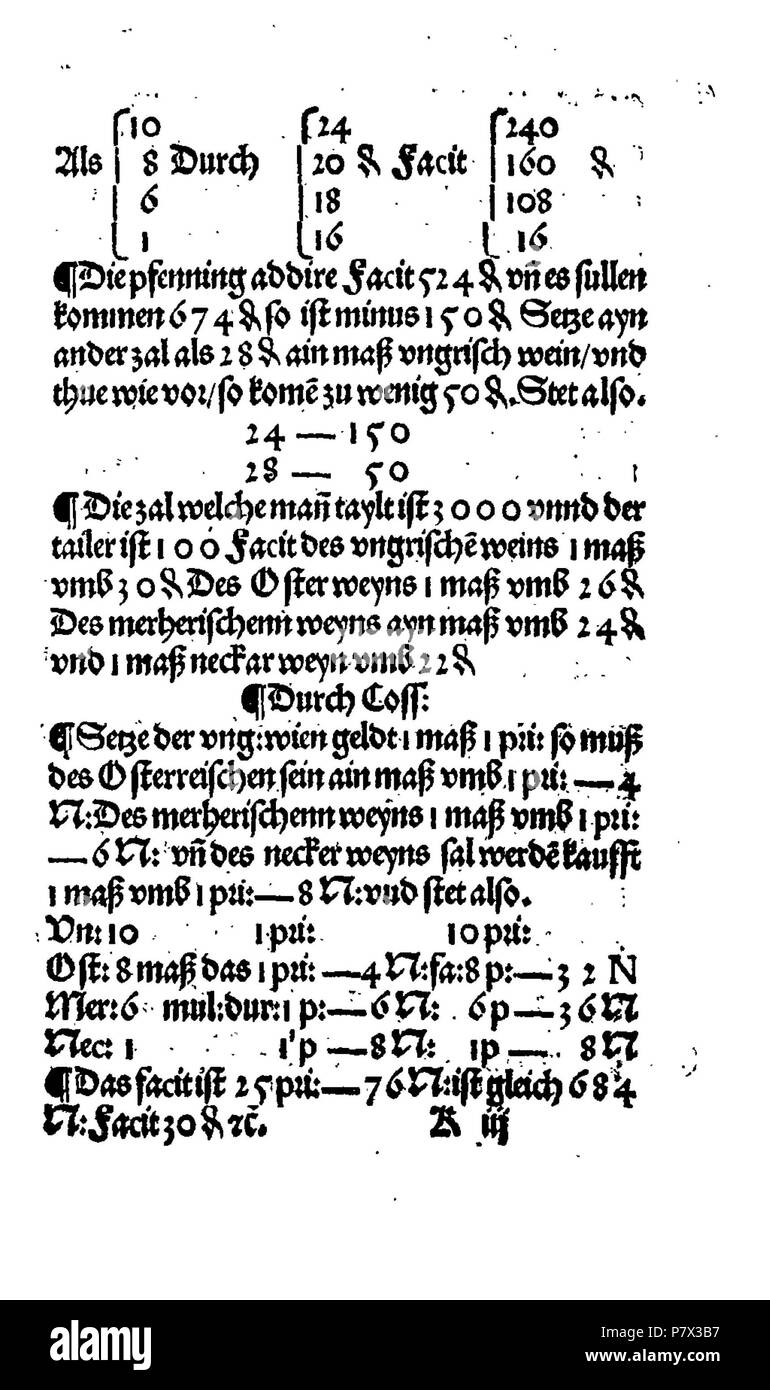 ⎧10 ⎧24 ⎧240
Als | 8 Durch | 20 ₰ Facit | 160 ₰
| 6 | 18 | 108
⎩ 1 ⎩16 ⎩ 16
¶Die pfenning addire Facit 524 ₰ vñ es sullen
kommen 674 ₰ so ist minus 150 ₰ Setze ayn
ander zal als 28 ₰ ain maß vngrisch wein/vnd
thue wie vor/so komē zu wenig 50 ₰. Stet also.
24 — 150
28 — 50
¶Die zal welche mañ taylt ist 3000 vnnd der
tailer ist 100 Facit des vngrischē weins 1 maß
vmb 30 ₰ Des Osterweyns 1 maß vmb 26 ₰
Des merherischenn weyns ayn maß vmb 24 ₰
vnd 1 maß neckar weyn vmb 22 ₰
¶Durch Coss:
¶Setze der vng:wien geldt 1 maß 1 pri: so muß
des Osterreischen sein ain maß vmb 1 pri: — 4
N:Des merherischenn weyns 1 maß vmb 1 pri:
— 6 N: vñ des necker weyns sal werdē kaufft
1 maß vmb 1 pri:— 8 N:vnd stet also.
Vn: 10 1 pri: 10 pri:
Ost: 8 maß das 1 pri: — 4 N:fa:8 p:— 32 N
Mer:6 mul:dur:1 p:— 6 N: 6 p — 36 N
Nec: 1 1 p — 8 N: 1 p — 8 N
¶Das facit ist 25 pri:— 76 N:ist gleich 684
N:Facit 30 ₰ ꝛc̄.
K iij
alamy
Image ID: P7X3B7
www.alamy.com